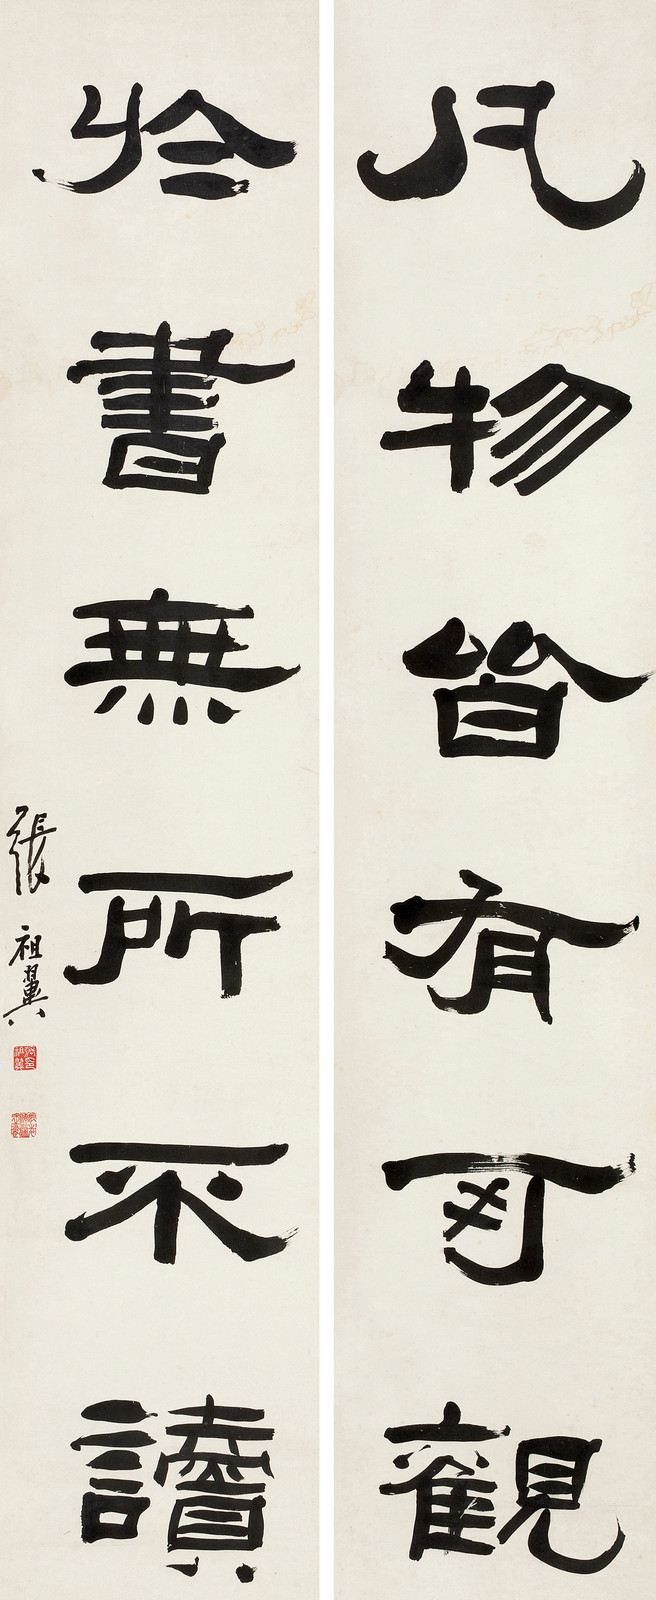 凡物皆有可觀
於書無所不讀
張祖翼